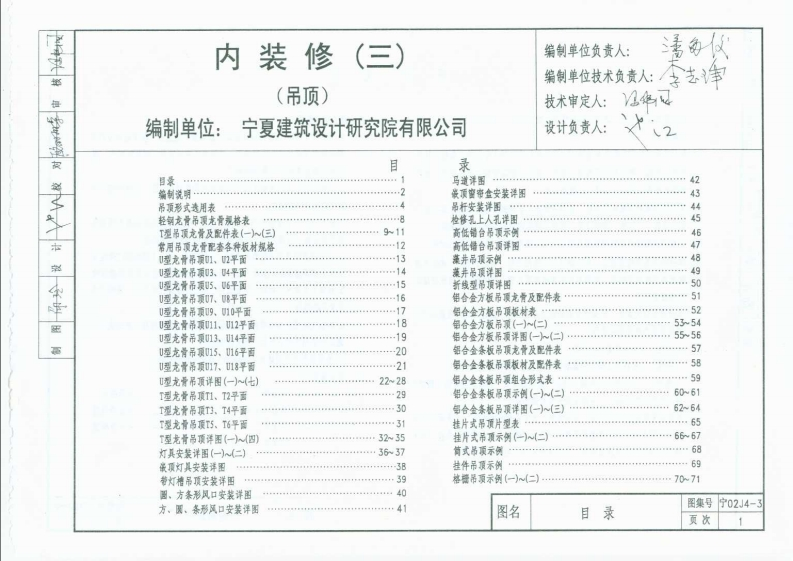 内 装 修 (三)
(吊顶)
编制单位: 宁夏建筑设计研究院有限公司
编制单位负责人:
编制单位技术负责人: 李志译
技术审定人:
设计负责人:
审 核
校 对
设 计
制 图
目 录
目录 1
编制说明 2
吊顶形式选用表 4
轻钢龙骨吊顶龙骨规格表 8
T型吊顶龙骨及配件表(一)~(三) 9~11
常用吊顶龙骨配套各种板材规格 12
U型龙骨吊顶U1、U2平面 13
U型龙骨吊顶U3、U4平面 14
U型龙骨吊顶U5、U6平面 15
U型龙骨吊顶U7、U8平面 16
U型龙骨吊顶U9、U10平面 17
U型龙骨吊顶U11、U12平面 18
U型龙骨吊顶U13、U14平面 19
U型龙骨吊顶U15、U16平面 20
U型龙骨吊顶U17、U18平面 21
U型龙骨吊顶详图(一)~(七) 22~28
T型龙骨吊顶T1、T2平面 29
T型龙骨吊顶T3、T4平面 30
T型龙骨吊顶T5、T6平面 31
T型龙骨吊顶详图(一)~(四) 32~35
灯具安装详图(一)~(二) 36~37
嵌顶灯具安装详图 38
带灯槽吊顶安装详图 39
圆、方条形风口安装详图 40
方、圆、条形风口安装详图 41
马道详图 42
嵌顶窗帘盒安装详图 43
吊杆安装详图 44
检修孔上人孔详图 45
高低错台吊顶示例 46
高低错台吊顶详图 47
藻井吊顶示例 48
藻井吊顶详图 49
折线型吊顶详图 50
铝合金方板吊顶龙骨及配件表 51
铝合金方板吊顶板材表 52
铝合金方板吊顶(一)~(二) 53~54
铝合金方板吊顶详图(一)~(二) 55~56
铝合金条板吊顶龙骨及配件表 57
铝合金条板吊顶板材及配件表 58
铝合金条板吊顶组合形式表 59
铝合金条板吊顶示例(一)~(二) 60~61
铝合金条板吊顶详图(一)~(三) 62~64
挂片式吊顶片型表 65
挂片式吊顶示例(一)~(二) 66~67
筒式吊顶示例 68
挂件吊顶示例 69
格栅吊顶示例(一)~(二) 70~71
图名 目 录 图集号 宁02J4-3
页 次 1